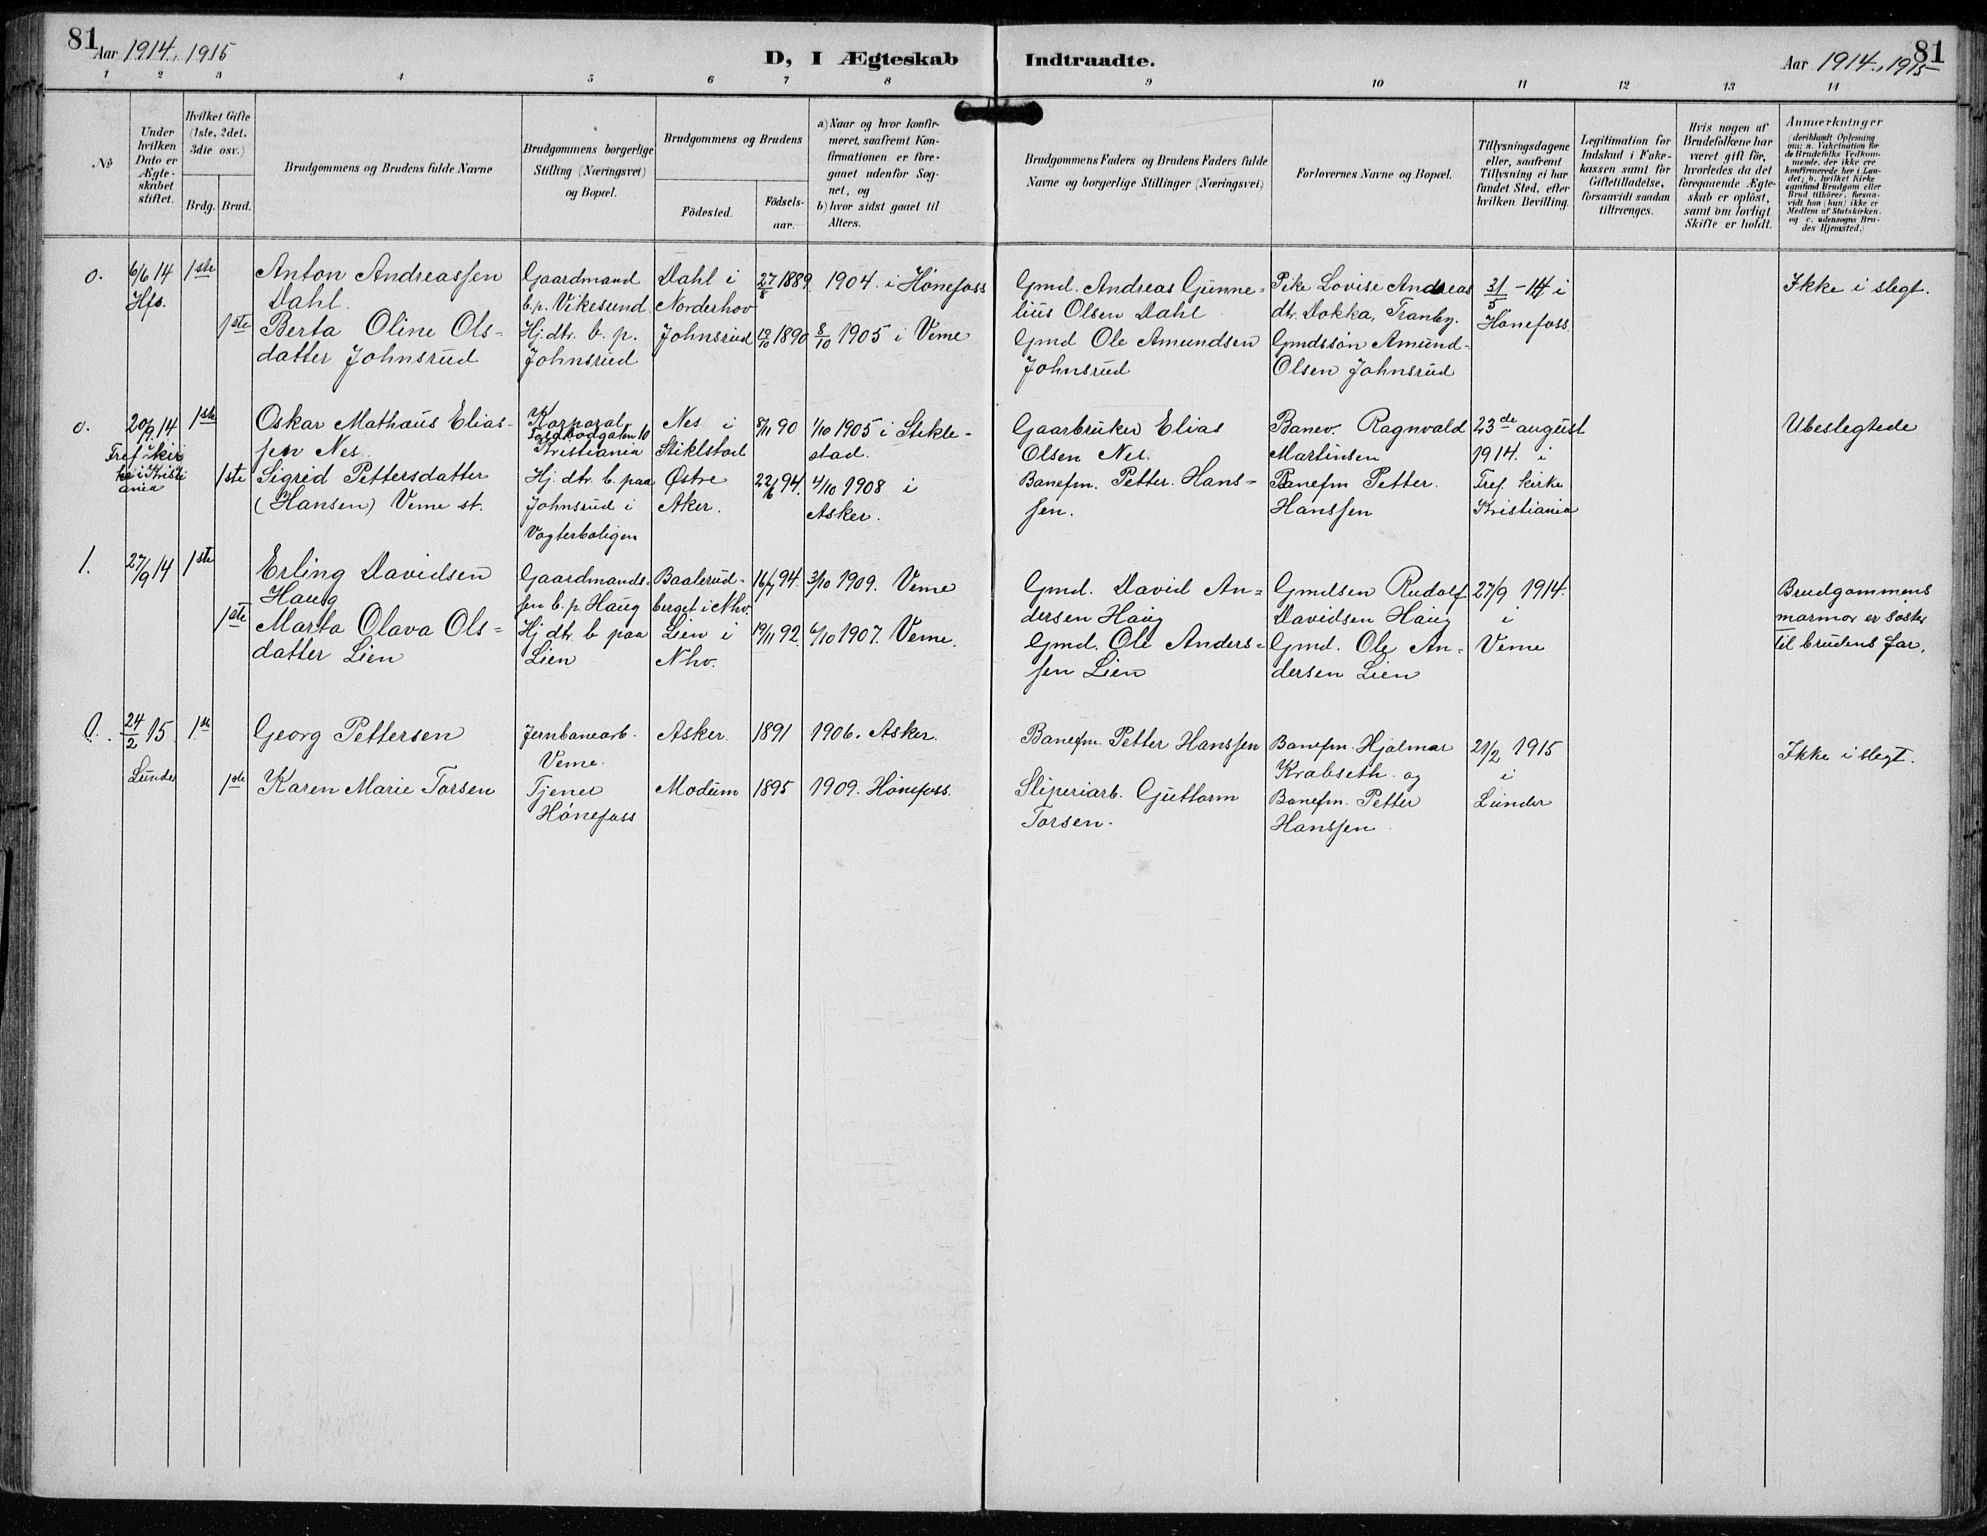 81
Aar 1914, 1915
D, I Ægteskab Indtraadte.
Aar 1914, 1915
81
1 2 3 4 5 6 7 8 9 10 11 12 13 14
No
Under
hvilken
Dato er
Ægte-
skabet
stiftet.
Hvilket Gifte
(1ste, 2det,
3die osv.)
Brdg. Brud.
Brudgommens og Brudens fulde Navne
Brudgommens borgerlige
Stilling (Næringsvei)
og Bopæl.
Brudgommens og Brudens
Födested.
Födsels-
aar.
a) Naar og hvor konfir-
meret, saafremt Kon-
firmationen er fore-
gaaet udenfor Sog-
net, og
b) hvor sidst gaaet til
Alters.
Brudgommens Faders og Brudens Faders fulde
Navne og borgerlige Stillinger (Næringsvei)
Forlovernes Navne og Bopæl.
Tillysningsdagene
eller, saafremt
Tillysning ei har
fundet Sted, efter
hvilken Bevilling.
Legitimation for
Indskud i Enke-
kassen samt for
Giftetilladelse,
forsaavidt saadan
tiltrænges.
Hvis nogen af
Brudefolkene har
været gift før,
hvorledes da det
foregaaende Ægte-
skab er opløst,
samt om lovligt
Skifte er holdt.
Anmærkninger
(deriblandt Oplysning
om: a. Vakcination for
de Brudefolks Vedkom-
mende, der ikke ere
konfirmerede her i Lan-
det; b. hvilket Kirke
samfund Brudgom eller
Brud tilhører, forsaa-
vidt han (hun) ikke er
Medlem af Statskirken,
og c. udensogns Bru-
des Hjemsted.)
0.
6/6 14
Hfs.
1ste
Anton Andreassen
Dahl.
Gaardmand
b.p. Vikesund
Dahl i
Norderhov
27/8 1889
1904. i Hönefoss
Gmd. Andreas Gunne-
lius Olsen Dahl
Pike Lovise Andreas
dtr. Dokka, Tranby.
31/5 - 14 i
Hönefoss
Ikke i slegt.
1ste
Berta Oline Ols-
datter Johnsrud
Hj. dtr. b. p.
Johnsrud
Johnsrud
12/10 1890
8/10 1905 i Veme
Gmd Ole Amundsen
Johnsrud
Gmdssön Amund
Olsen Johnsrud
0.
20/9 14
Tref. kir
ke i Kristi
ania
1ste
Oskar Mathæus Elias-
sen Nes
Korporal
Toldbodgaten 10
Kristiania
Nes i
Stiklstad
8/11 90
1/10 1905 i Stikle-
stad.
Gaarbruker Elias
Olsen Nes.
Banev. Ragnvald
Martinsen
23de august
1914. i
Tref. kirke
Kristiania
Ubeslegtede
1ste
Sigrid Pettersdatter
(Hansen) Veme st.
Hj. dtr. b. paa
Johnsrud i
Vogterboligen
Østre
Aker.
22/6 94.
4/10 1908 i
Asker.
Banefm. Petter Hans-
sen.
Banefm Petter.
Hanssen
1.
27/9 14
1ste
Erling Davidsen
Haug
Gaardmands-
sen b. p. Haug
Baalerud-
berget i Nhv.
16/7 94.
3/10 1909. Veme
Gmd. David An-
dersen Haug
Gmdsen Rudolf
Davidsen Haug
27/9 1914.
i
Veme
Brudgommens
mormor er söster
til brudens far.
1ste
Marta Olava Ols-
datter Lien
Hj. dtr. b paa
Lien
Lien i
Nhv.
19/11 92.
6/10 1907. Veme.
Gmd. Ole Anders-
sen Lien
Gmd. Ole An-
dersen Lien
0.
24/2 15
Lunder
1ste
Georg Pettersen
Jernbanearb.
Veme.
Asker.
1891
1906. Asker.
Banefm. Petter Hanssen
Banefm. Hjalmar
Krabseth. og
Banefm. Petter
Hanssen.
21/2 1915
i
Lunder
Ikke i slegt.
1ste
Karen Marie Torsen
Tjener
Hönefoss
Modum
1895
1909. Hönefoss.
Sliperiarb. Guttorm
Torsen.